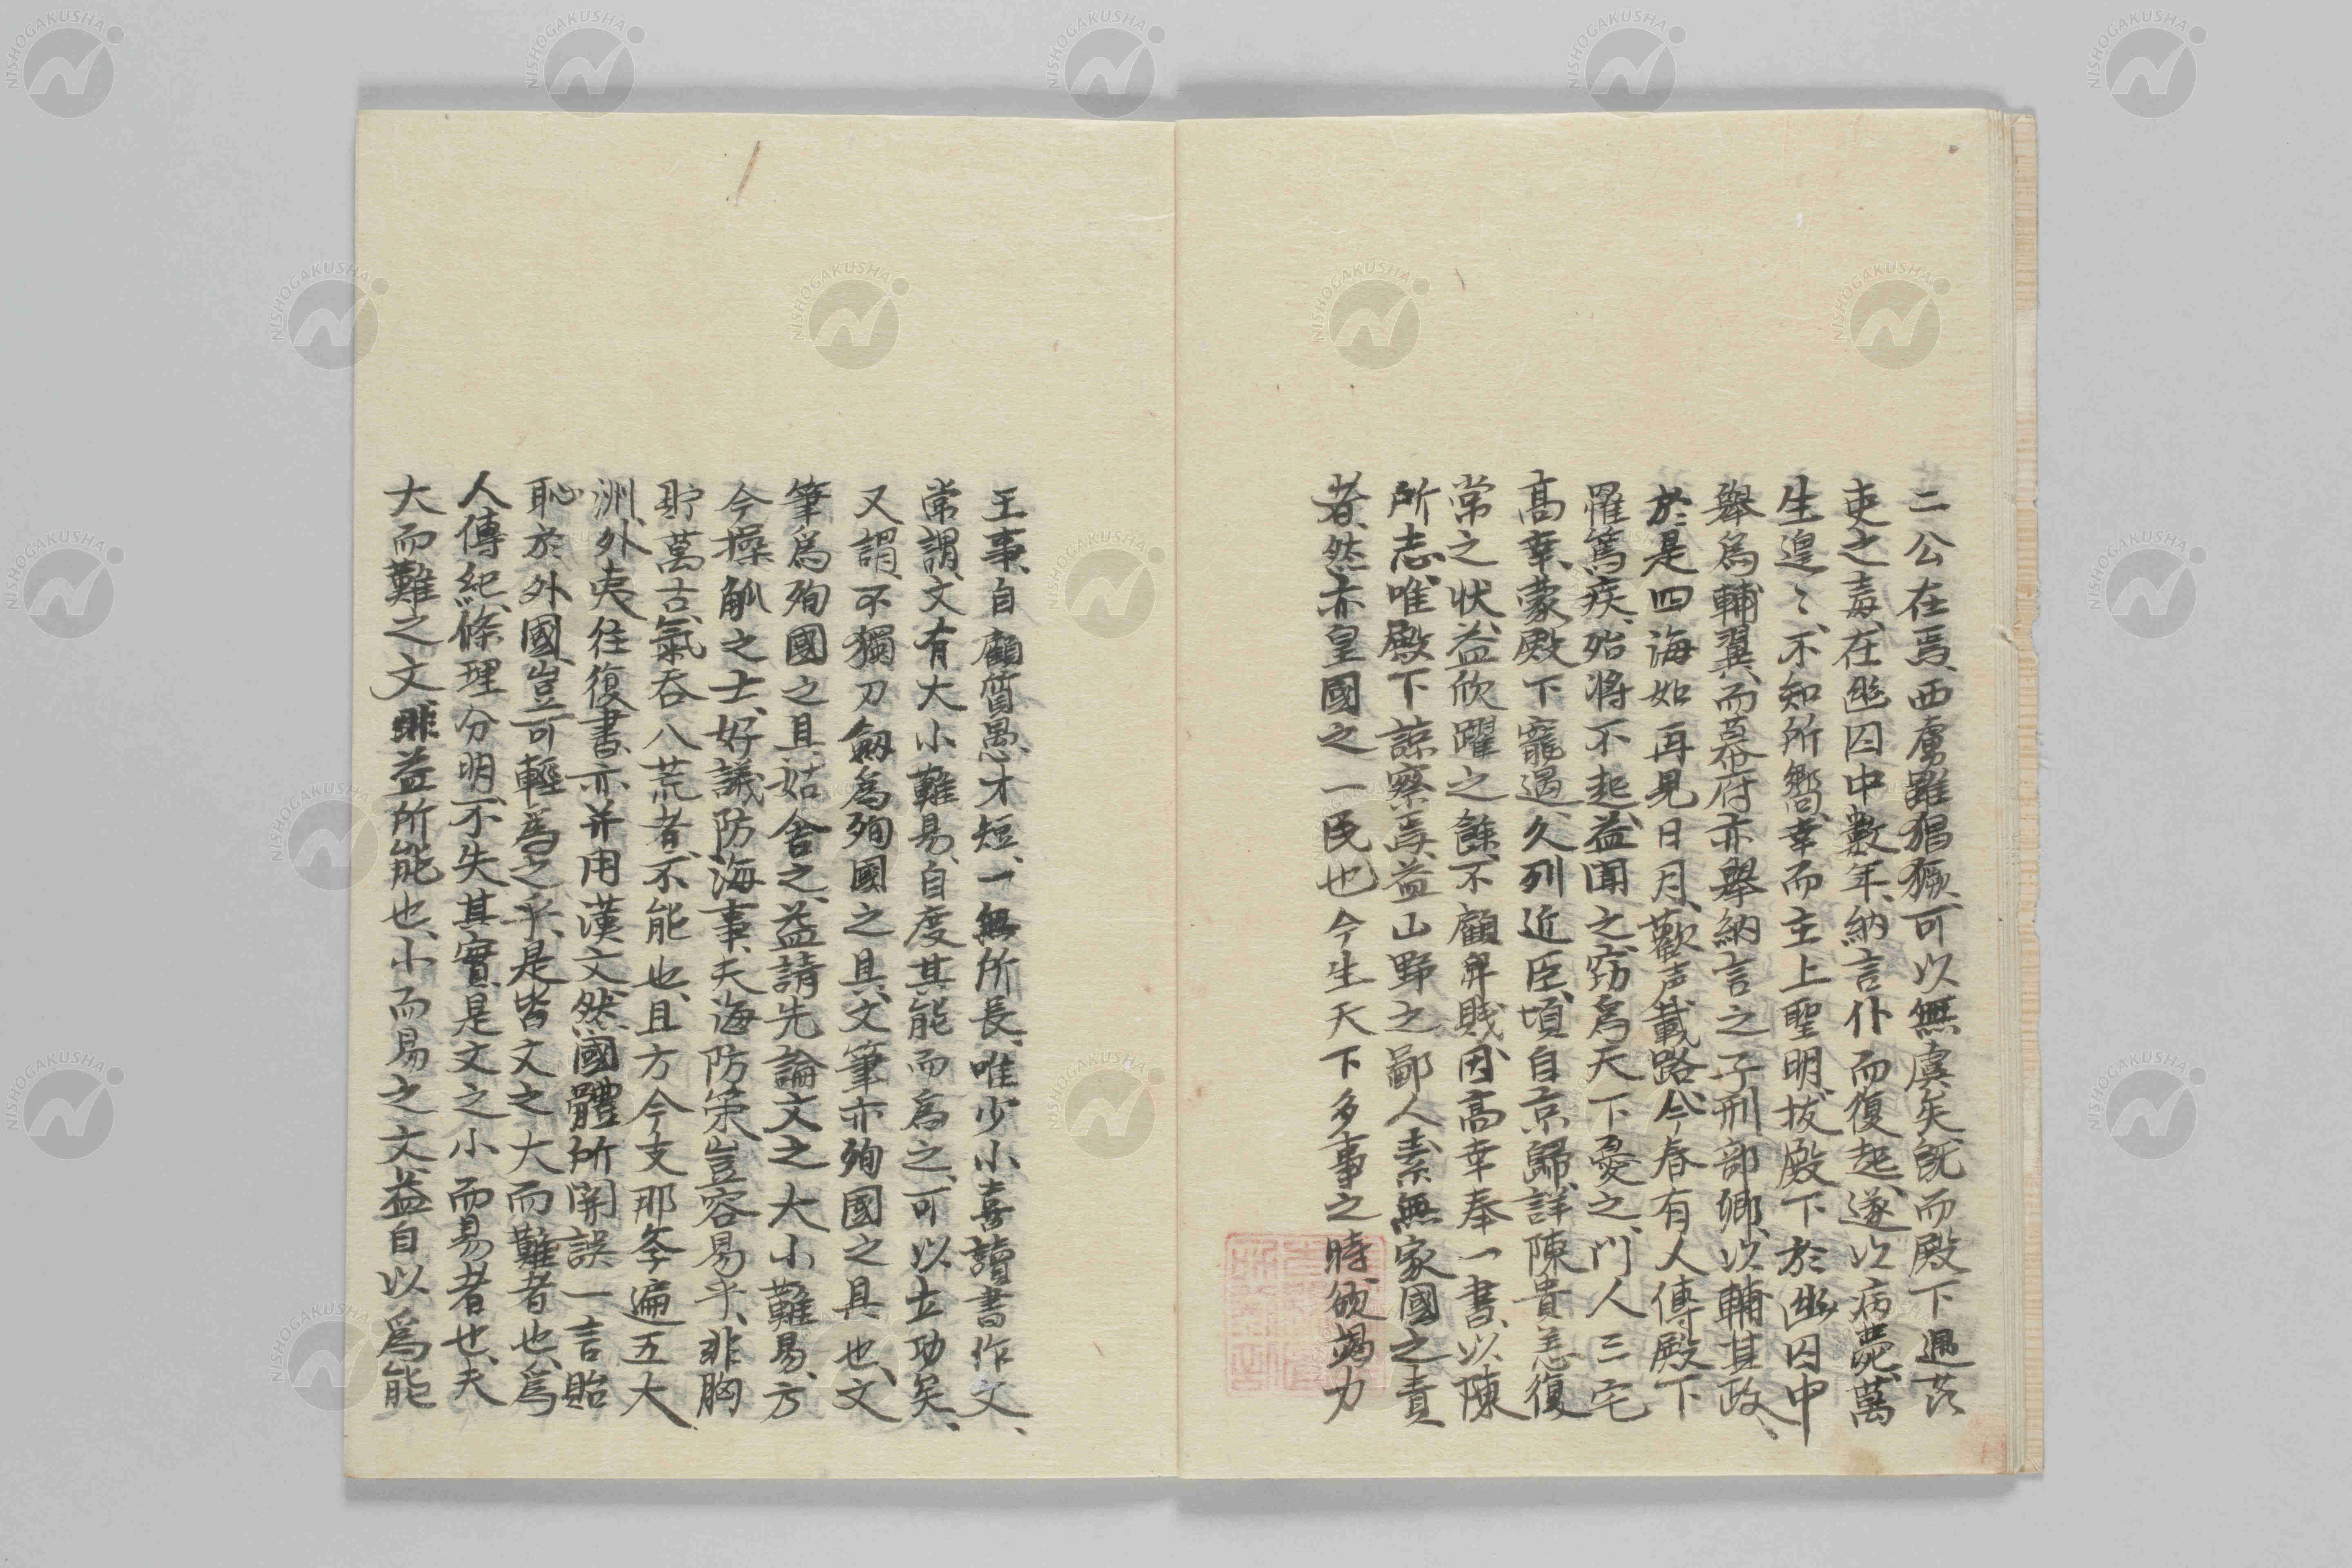 二公在焉、西虜雖猖獗、可以無虞矣、既而殿下遇茨
吏之毒、在幽囚中數年、納言仆而復起、遂以病薨、萬
生遑〻、不知所嚮、幸而主上聖明、拔殿下於幽囚中
舉爲輔翼、而幕府亦舉納言之子刑部卿、以輔其政、
於是四海如再見日月、歡声載路、今春有人傳殿下
罹篤疾、殆將不起、益聞之、窃爲天下憂之、門人三宅
高幸、蒙殿下寵遇、久列近臣、頃自京歸、詳陳貴恙復
常之狀、益欣躍之餘、不顧卑賤、因高幸奉一書、以陳
所志、唯殿下諒察焉、益山野之鄙人、素無家國之責
者、然亦皇國之一民也、今生天下多事之時、欲竭力
王事、自顧質愚、才短、一無所長、唯少小喜讀書作文、
常謂、文有大小難易、自度其能而爲之、可以立功矣、
又謂、不獨刀劔爲殉國之具、文筆亦殉國之具也、文
筆爲殉國之具、姑舍之、益請先論文之大小難易、方
今操觚之士、好議防海事、夫海防策豈容易乎、非胸
貯萬古、氣吞八荒者、不能也、且方今支那夆遍五大
洲、外夷往復書、亦并用漢文、然國體所関、誤一言貽
恥於外國、豈可輕爲之乎、是皆文之大而難者也、爲
人傳紀、條理分明、不失其實、是文之小而易者也、夫
大而難之文、非益所能也、小而易之文、益自以爲能
NISHOGAKUSHA